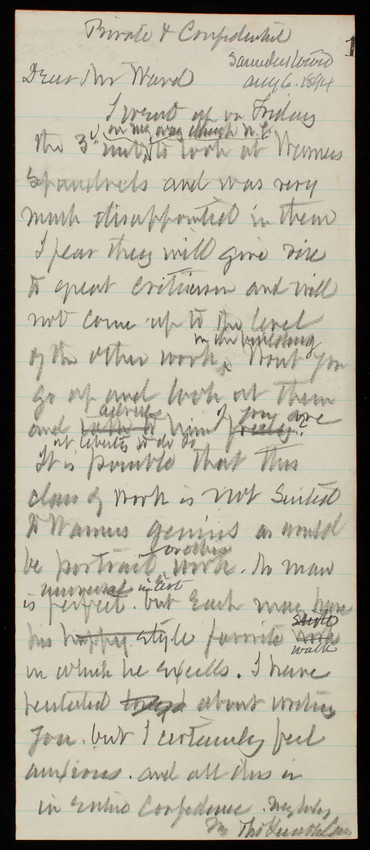 Private & Confidential
1
Samuel Ward
Aug 6. 1894
Dear Mr Ward
I went up on Friday
on my way through N.Y.
the 3d to look at Warners
Spandrels and was very
much disappointed in them
I fear they will give rise
to great criticism and will
not come up to the level
in the building
of the other work. Wont you
go up and look at them
advise if you are
and him freely?
at liberty to do so
It is possible that this
class of work is not suited
to Warners genius as would
be portrait work. No man
universal in Art
is perfect. but each man has
his happy style favorite
walk
in which he excells. I have
hesitated about writing
you. but I certainly feel
anxious. and all this is
in Entire Confidence. Very truly